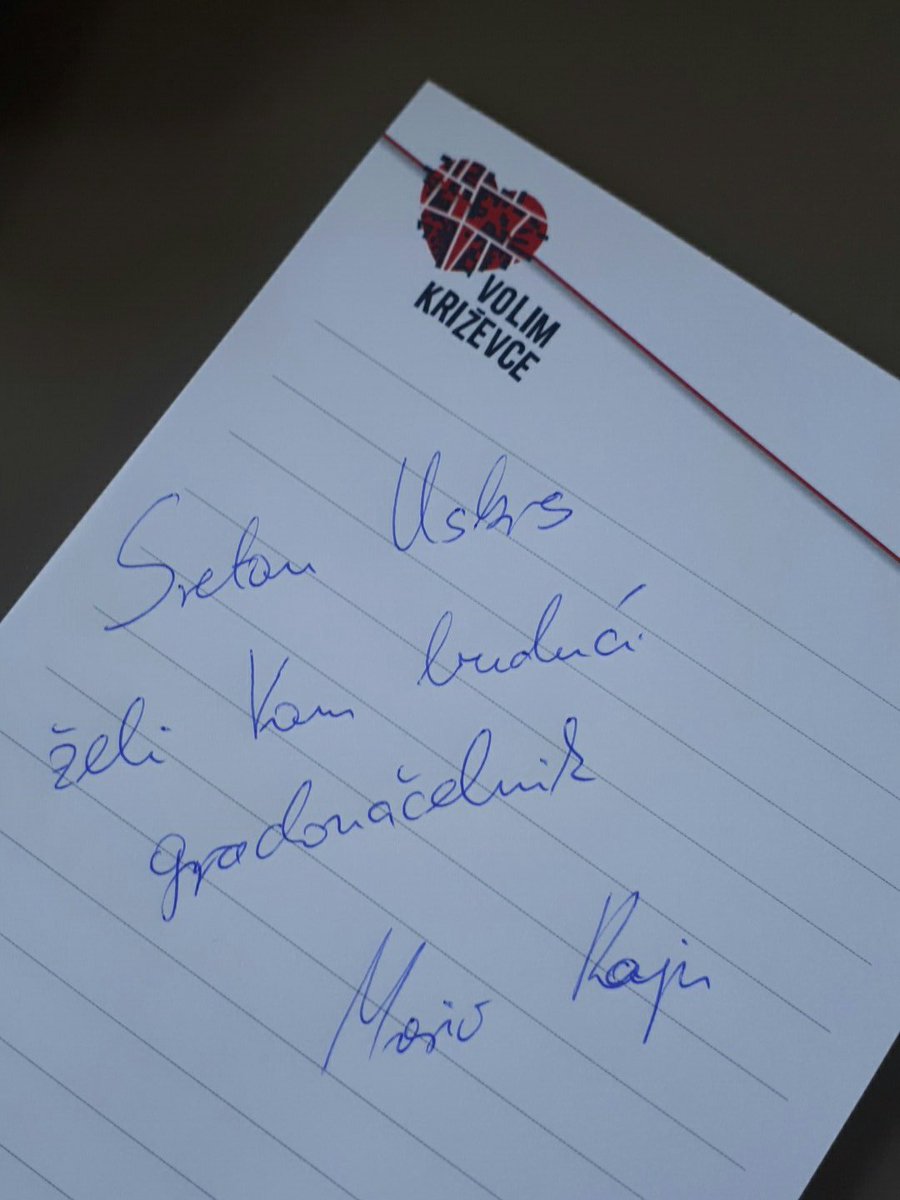 VOLIM
KRIŽEVCE
Sretan Uskrs
želi Vam budući
gradonačelnik
Mario Rajn